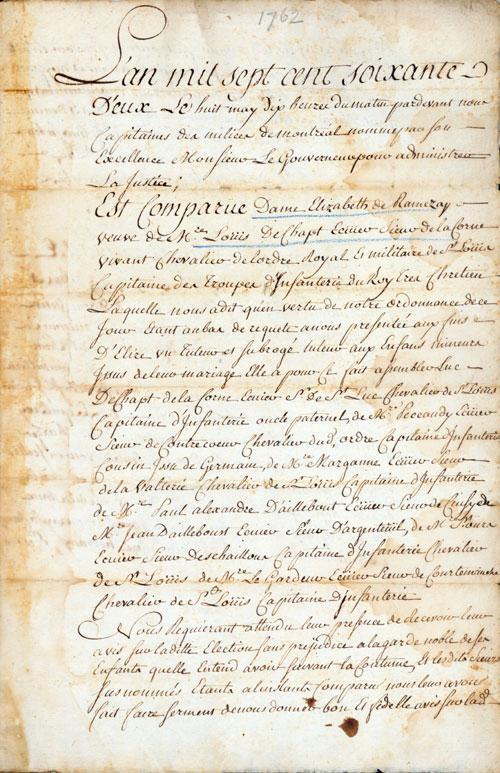 1762
L'an mil sept cent soixante
Deux Le huit may dix heures du matin pardevant nous
Capitaines des milices de montréal nommé par son
Excellence Monsieur Le Gouverneur pour administrer
La Justice;
Est Comparue Dame Elizabeth de Ramezay
veuve de Mre. Loüis De Chapt Ecuier Sieur de la Corne
vivant Chevalier de l'ordre Royal et militaire de St. Loüis
Capitaine des Troupes d'Infanterie du Roy Tres Chretien
Laquelle nous a dit qu'en vertu de notre ordonnance de ce
Jour Etant au bas de requete a nous presentée aux fins
D'Elire un Tuteur et subrogé tuteur aux Enfans mineurs
Issus de leur mariage Elle a pour ce fait assembler Luc
De Chapt de la Corne Ecuier Sr. de St. Luc Chevalier de St. Loüis
Capitaine d'Infanterie oncle paternel, de Mre. Peccaudy Ecuier
Sieur de Contrecoeur Chevalier dud. ordre Capitaine d'Infanterie
Cousin Issu de Germain, de Mre. Marganne Ecuier Sieur
de la Valterie Chevalier de St. Loüis Capitaine d'Infanterie
de Mre. Paul alexandre Dailleboust Ecuier Sieur de Cuisy, de
Mre. Jean Dailleboust Ecuier Sieur D'argenteüil, de Mre.
Ecuier Sieur Deschaillons Capitaine d'Infanterie Chevalier
de St. Loüis de Mre. Le Gardeur Ecuier Sieur de Courtemanche
Chevalier de St. Loüis Capitaine d'Infanterie
Nous Requierant attendu leur presence de Recevoir leur
avis sur laditte Election sans prejudice a la garde noble de ses
Enfants quelle Entend avoir suivant la Coutume, Et lesdits Sieurs
susnommés Etants a l'instant Comparu nous leur avons
fait faire serment de nous donner bon Et fidelle avis sur lad.